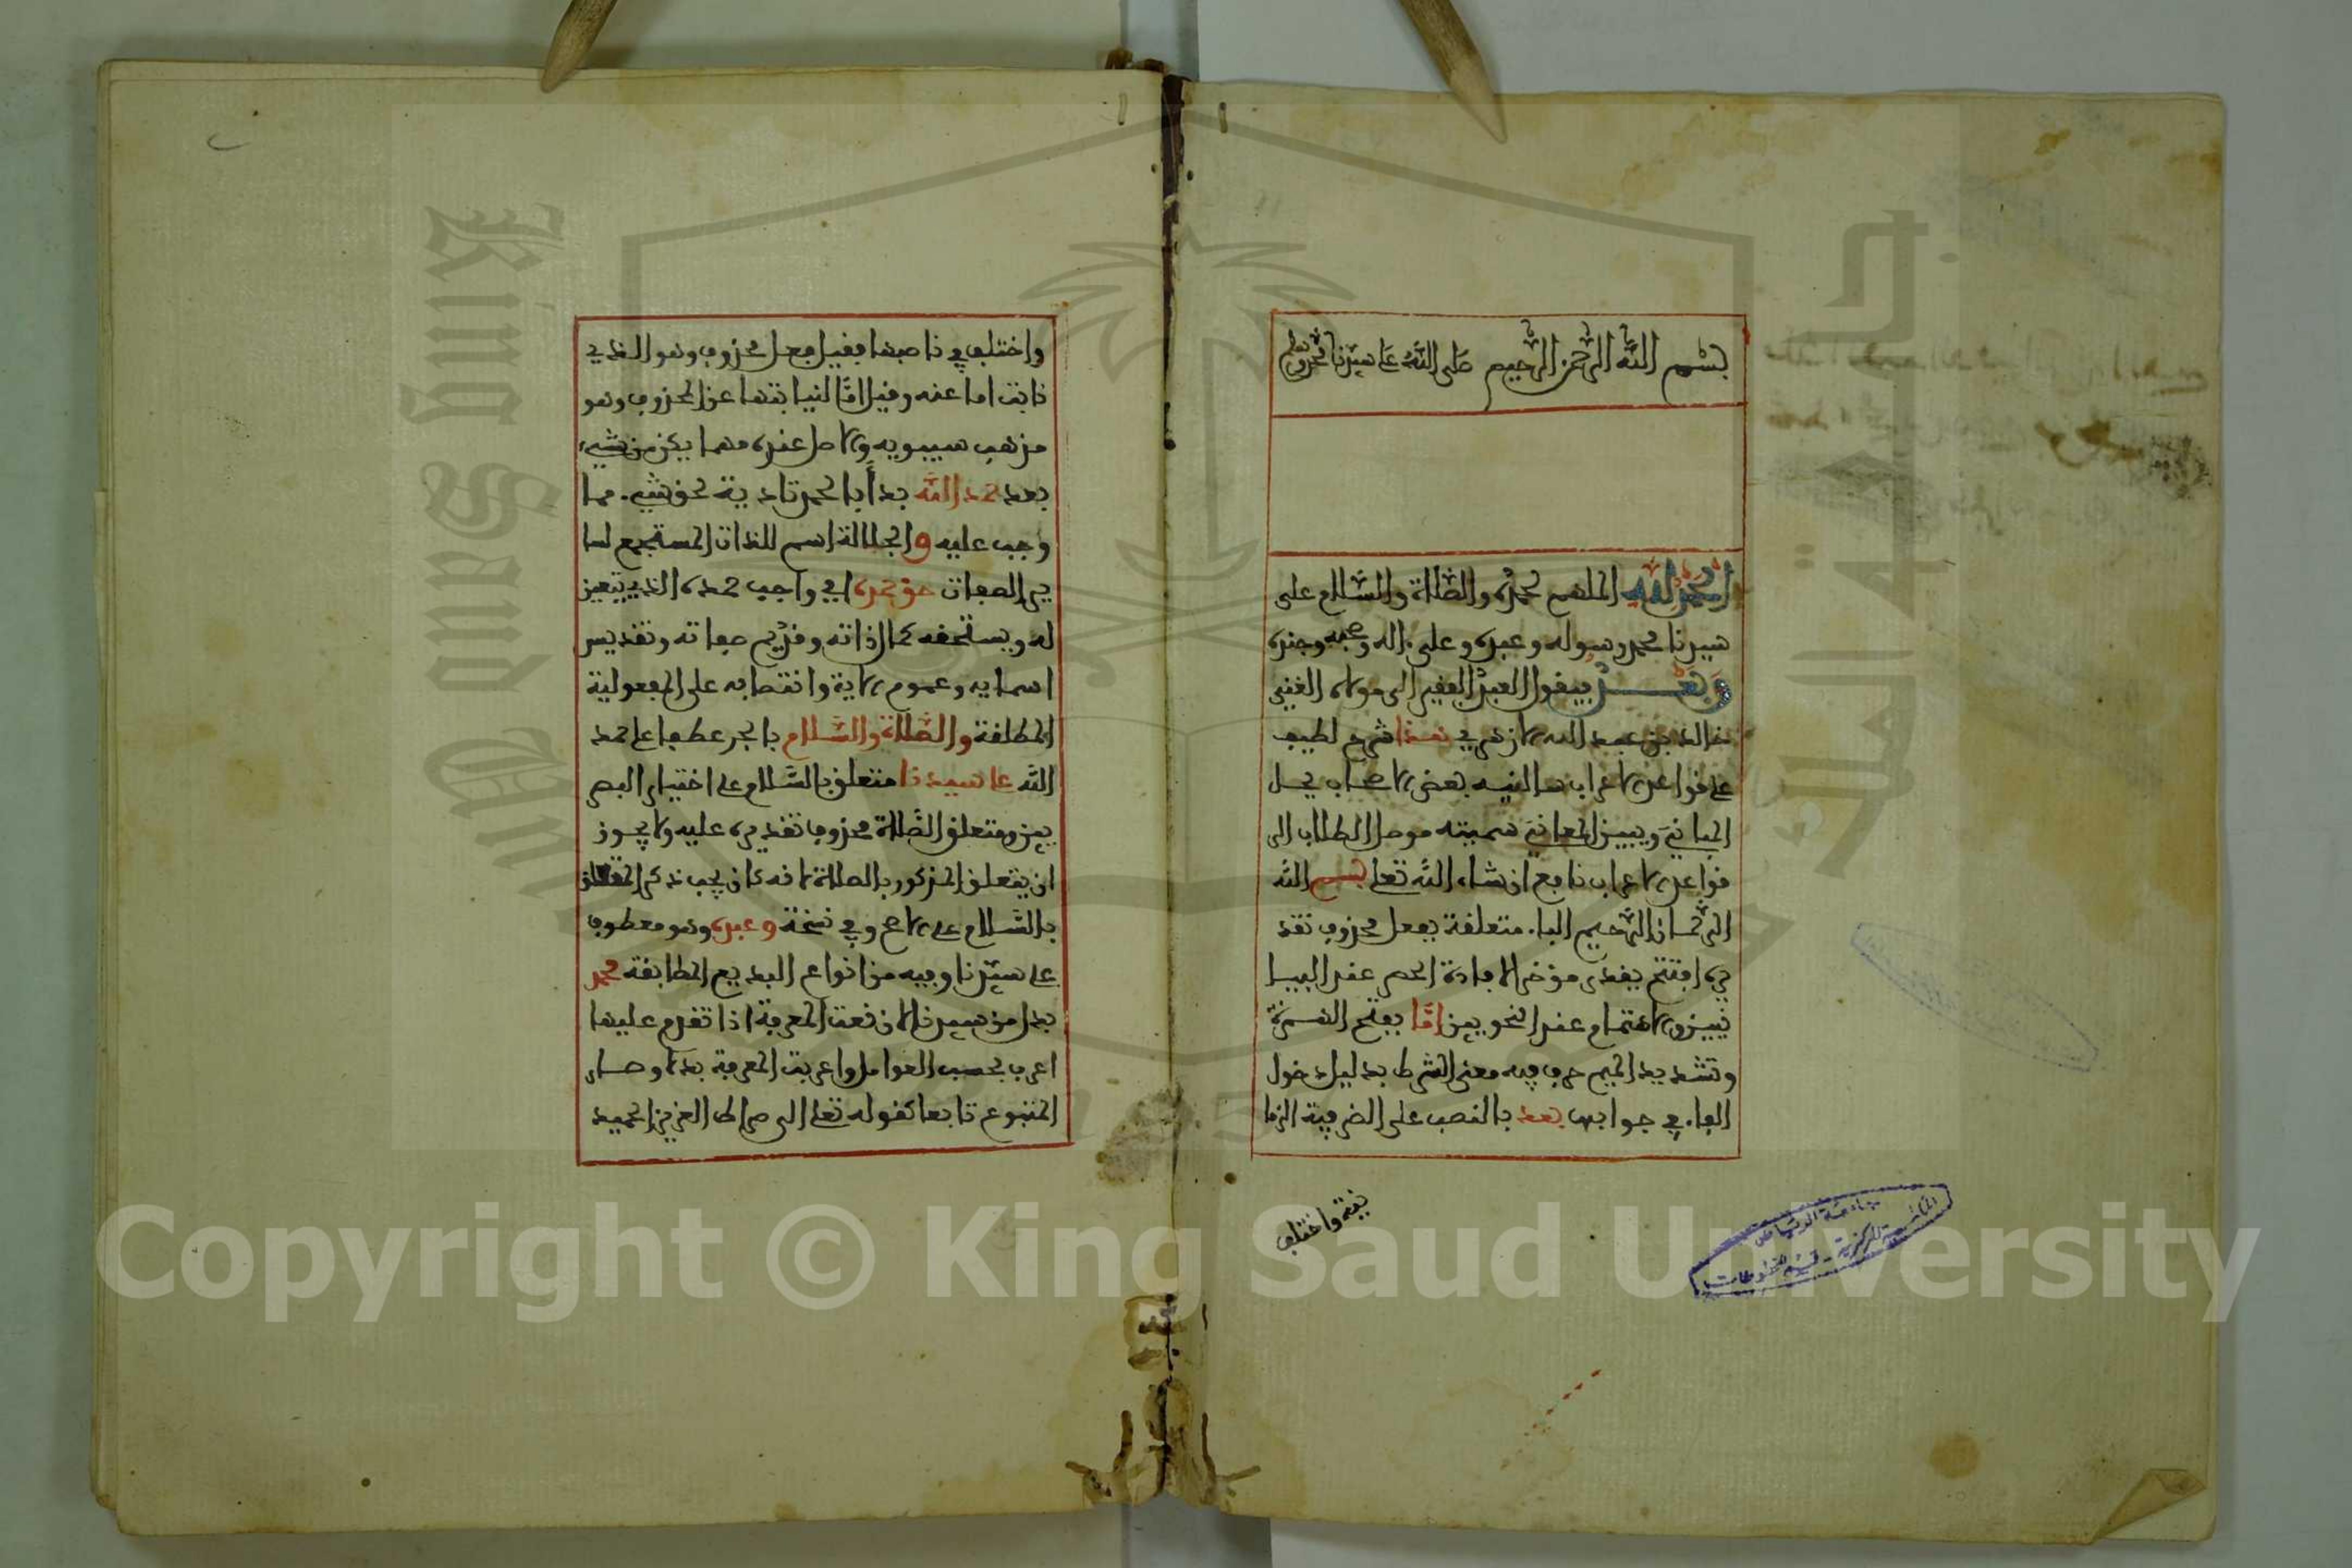 بسم الله الرحمن الرحيم صلى الله على سيدنا محمد وسلم
الحمد لله الملهم لحمده والصلاة والسلام على
سيدنا محمد رسوله وعبده وعلى ءاله وصحبه وجنده
وبعد فيقول العبد الفقير الى مولاه الغني
خالد بن عبد الله الازهري هذا شرح لطيف
على قواعد الاعراب سالنيه بعض الاصحاب يحل
المباني ويبين المعاني سميته موصل الطلاب الى
قواعد الاعراب نافع ان شاء الله تعلى بسم الله
الرحمان الرحيم الباء متعلقة بفعل محذوف تقد
يره افتتح يقدر مؤخرا لافادة الحصر عند البيا
نيين والاهتمام عند النحويين امّا بفتح الهمزة
وتشديد الميم حرف فيه معنى الشرط بدليل دخول
الفاء في جوابها بعد بالنصب على الضرفية الزما
نية واختلف
واختلف في ناصبها فقيل فعل محذوف وهو الذي
نابت اما عنه وقيل امّا لنيابتها عن المحذوف وهو
مذهب سيبويه والاصل عنده مهما يكن من شيء
بعد حمد الله بدأ بالحمد تادية لحق شيء مما
وجب عليه والجلالة اسم للذات المستجمع لسا
ير الصفات حق حمده اي واجب حمده الذي يتعين
له ويستحقه كمال ذاته وقديم صفاته وتقديس
اسمايه وعموم الاية وانتصابه على المفعولية
المطلقة والصلاة والسلام بالجر عطفا على حمد
الله على سيدنا متعلق بالسلام على اختيار البصر
يين ومتعلق الصلاة محذوف تقديره عليه ولا يجوز
ان يتعلق المذكور بالصلاة لانه كان يجب ذكر المتعلق
بالسلام على الاصح وفي نسخة وعبده وهو معطوف
على سيدنا وفيه من انواع البديع المطابقة محمد
بدل من سيدنا لان نعت المعرفة اذا تقدم عليها
اعرب بحسب العوامل واعربت المعرفة بدلا وصار
المتبوع تابعا كقوله تعلى الى صراط العزيز الحميد
جامعة الرياض
المكتبة المركزية - قسم المخطوطات
King Saud University
Copyright © King Saud University